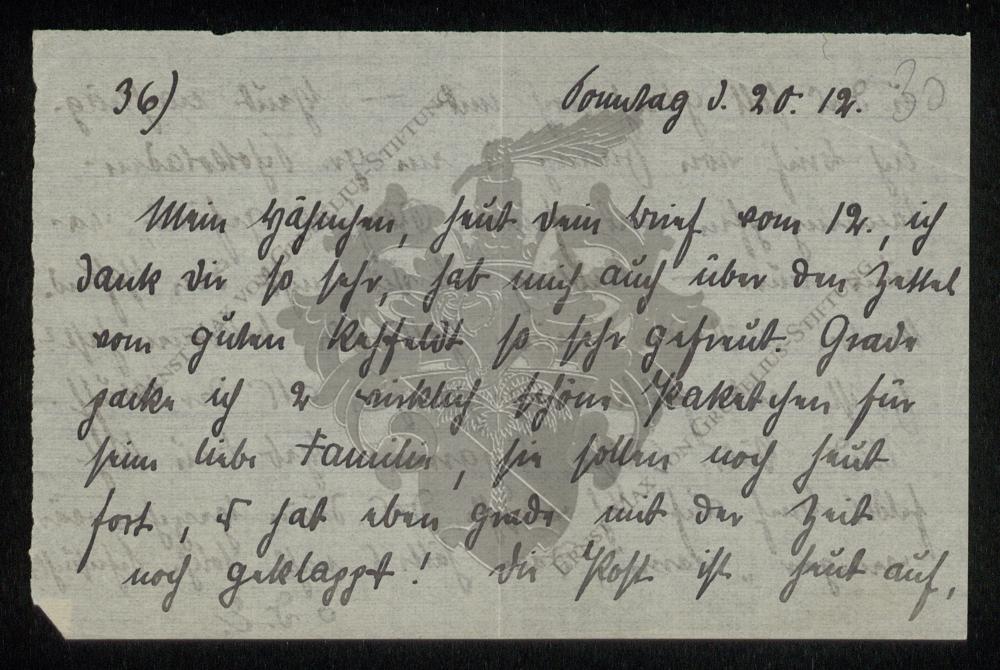 36) Sonntag d. 20. 12. 30
Mein Hähnchen, heut dein Brief vom 12., ich
dank dir so sehr, hab mich auch über den Zettel
vom guten Rehfeldt so sehr gefreut. Grade
packe ich 2 wirklich schöne Paketchen für
seine liebe Familie, sie sollen noch heut
fort, es hat eben grade mit der Zeit
noch geklappt! die Post ist heut auf,